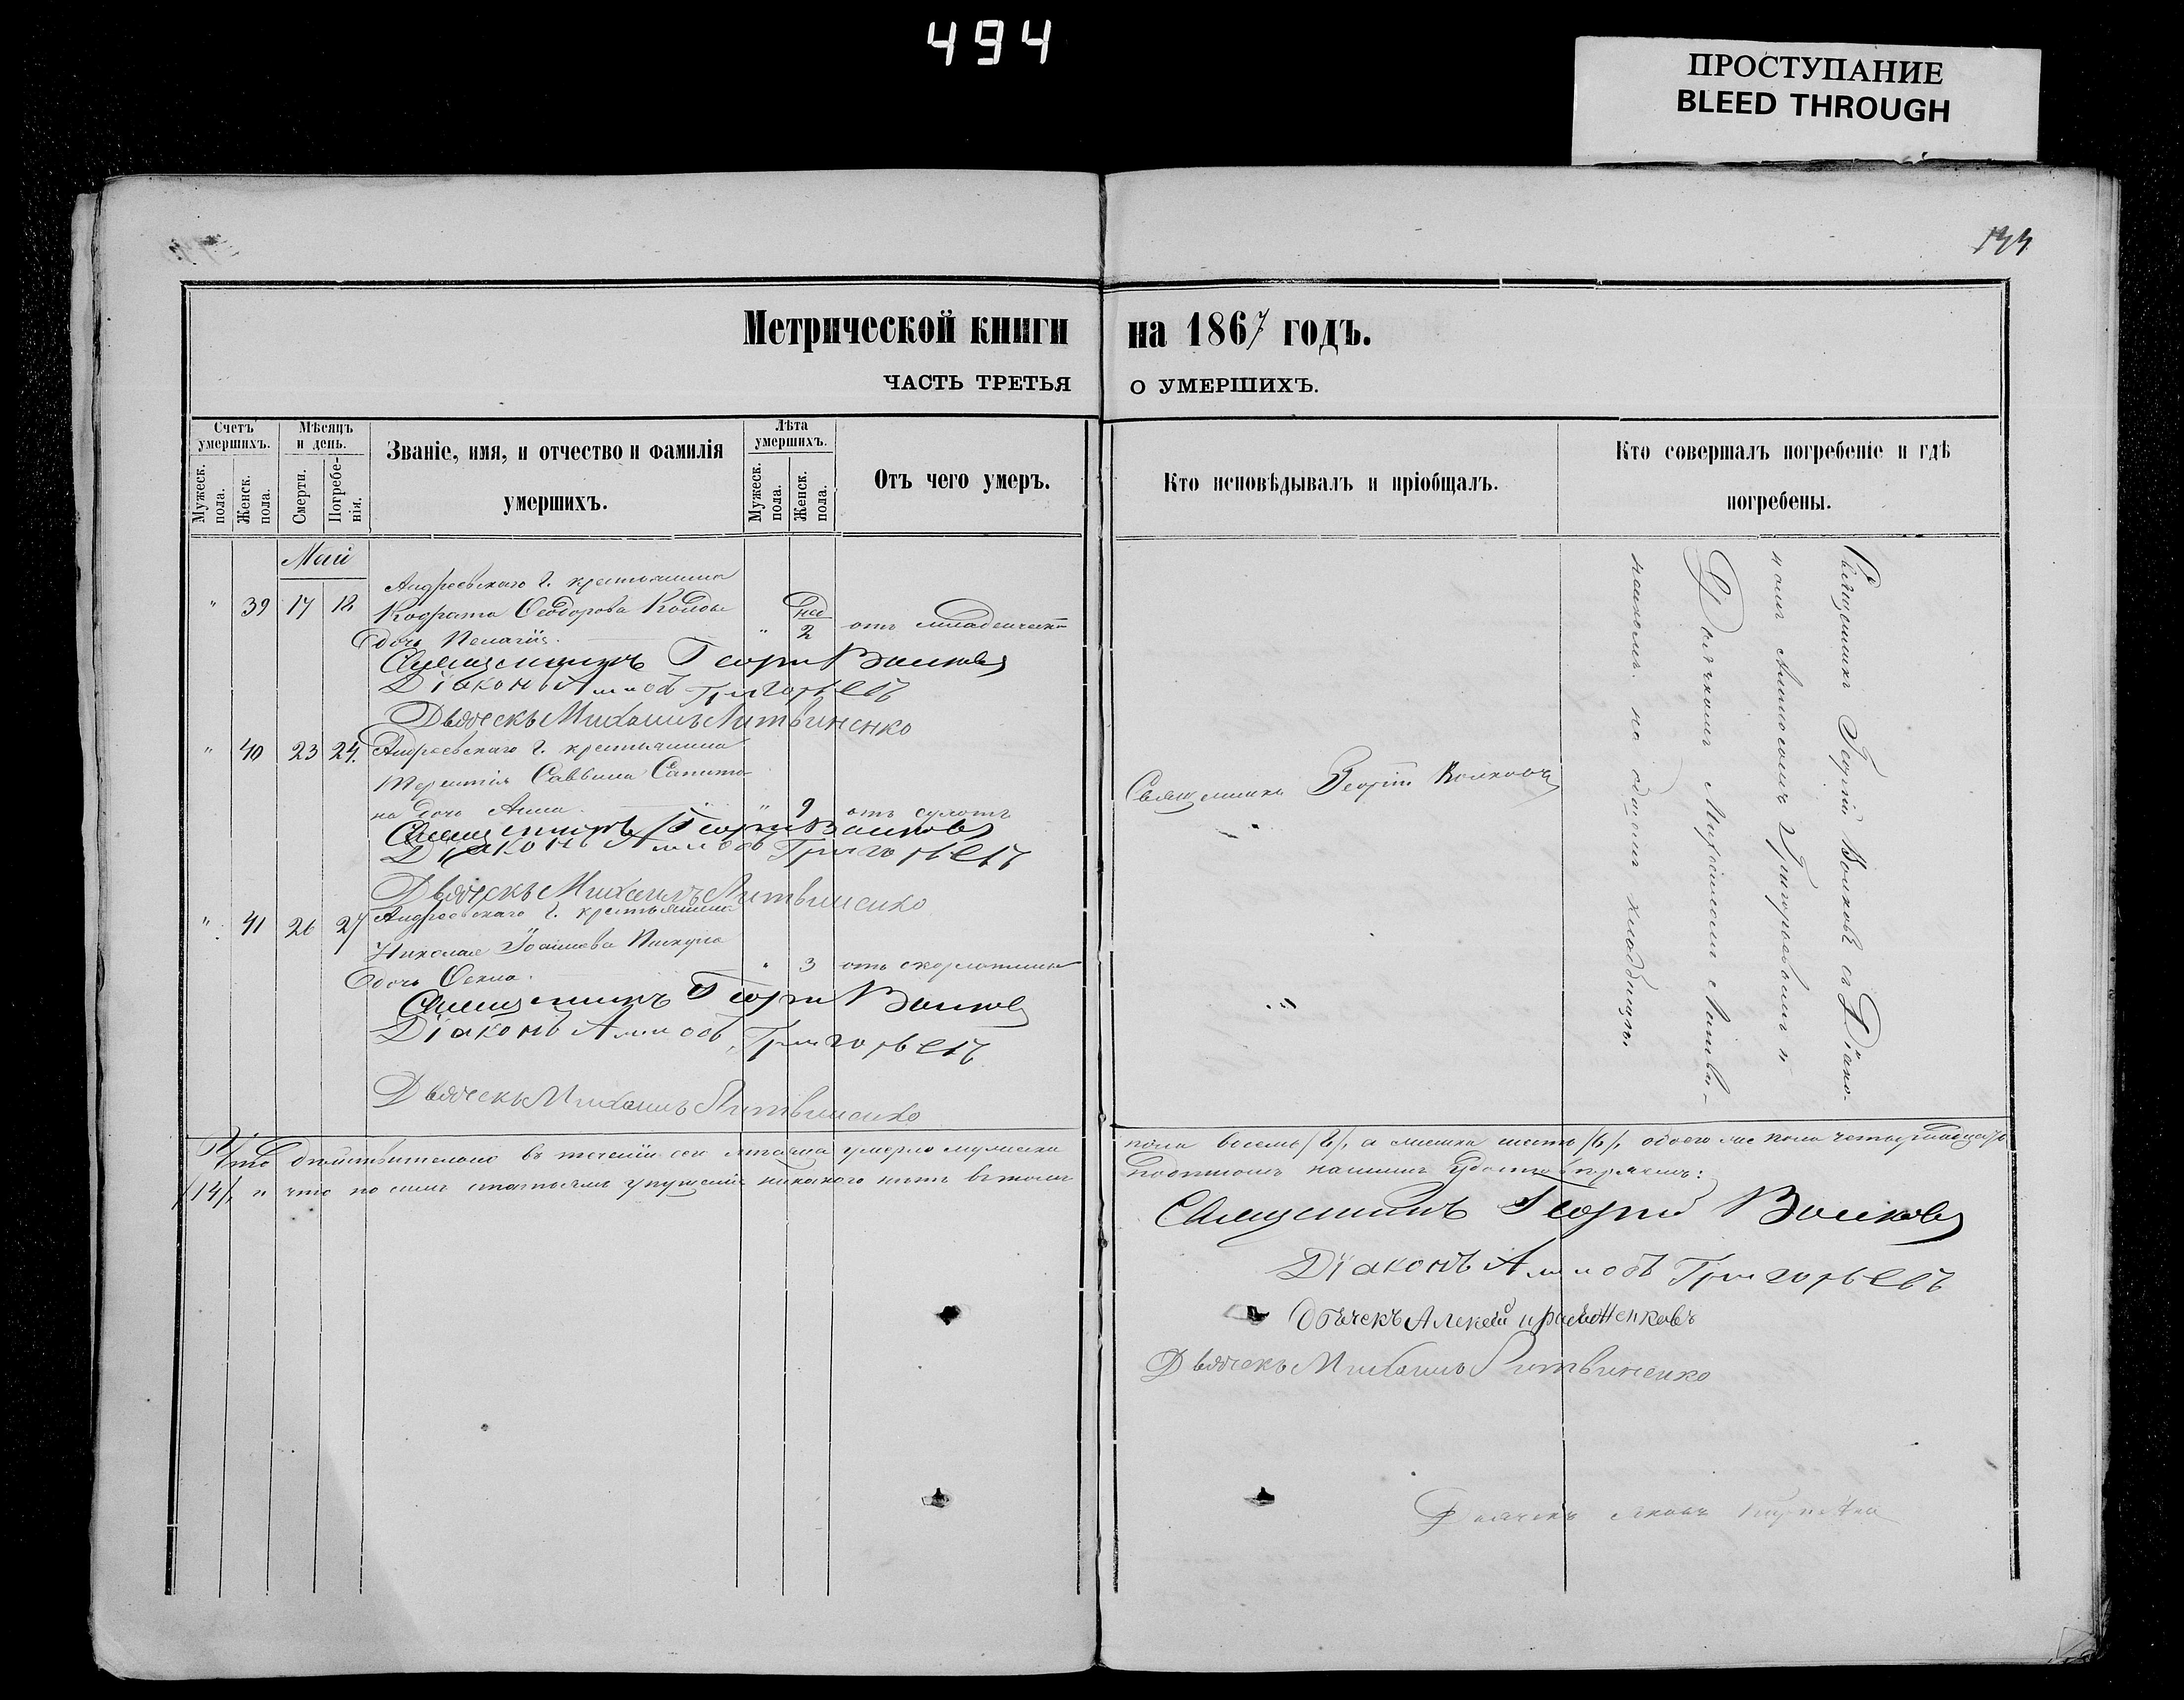 494
ПРОСТУПАНИЕ
BLEED THROUGH
Метрической книги на 1867 годъ.
ЧАСТЬ ТРЕТЬЯ О УМЕРШИХЪ.
Счетъ умершихъ.
Мужеск. пола.
Женск. пола.
Мѣсяцъ и день.
Смерти.
Погребенія.
Званіе, имя, и отчество и фамилія
умершихъ.
Лѣта умершихъ.
Мужеск. пола.
Женск. пола.
Отъ чего умеръ.
Кто исповѣдывалъ и пріобщалъ.
Кто совершалъ погребеніе и гдѣ
погребены.
Май
" 39 17 18 Андреевскаго г. крестьянина
Кодрата Ѳеодорова
дочь Пелагія. " нед 2 отъ младенческ
Священникъ Георгій Волковъ
Діаконъ Григорьевъ
Дьячекъ Михаилъ Литвиненко
" 40 23 24. Андреевскаго г. крестьянина
Терентія Саввина
на дочь Анна. " 9 отъ сухотъ
Священникъ Георгій Волковъ
Діаконъ Григорьевъ
Дьячекъ Михаилъ Литвиненко
" 41 26 27 Андреевскаго г. крестьянина
Николая Іоаннова
дочь " 3 отъ скорлатины
Священникъ Георгій Волковъ
Діаконъ Григорьевъ
Дьячекъ Михаилъ Литвиненко
Священникъ Георгій Волковъ
Священникъ Георгій Волковъ съ Діако-
номъ Григорьевымъ и
Дьячкомъ Михаиломъ Литви-
ненкомъ на общемъ кладбищѣ
Что дѣйствительно въ теченіи сего мѣсяца умерло мужеска пола восемь /8/, а женска шесть /6/, обоего же пола четырнадцать
/14/, и что по симъ статьямъ упущенія никакого нѣтъ въ томъ подписомъ нашимъ
Священникъ Георгій Волковъ
Діаконъ Григорьевъ
Алексѣй
Дьячекъ Михаилъ Литвиненко